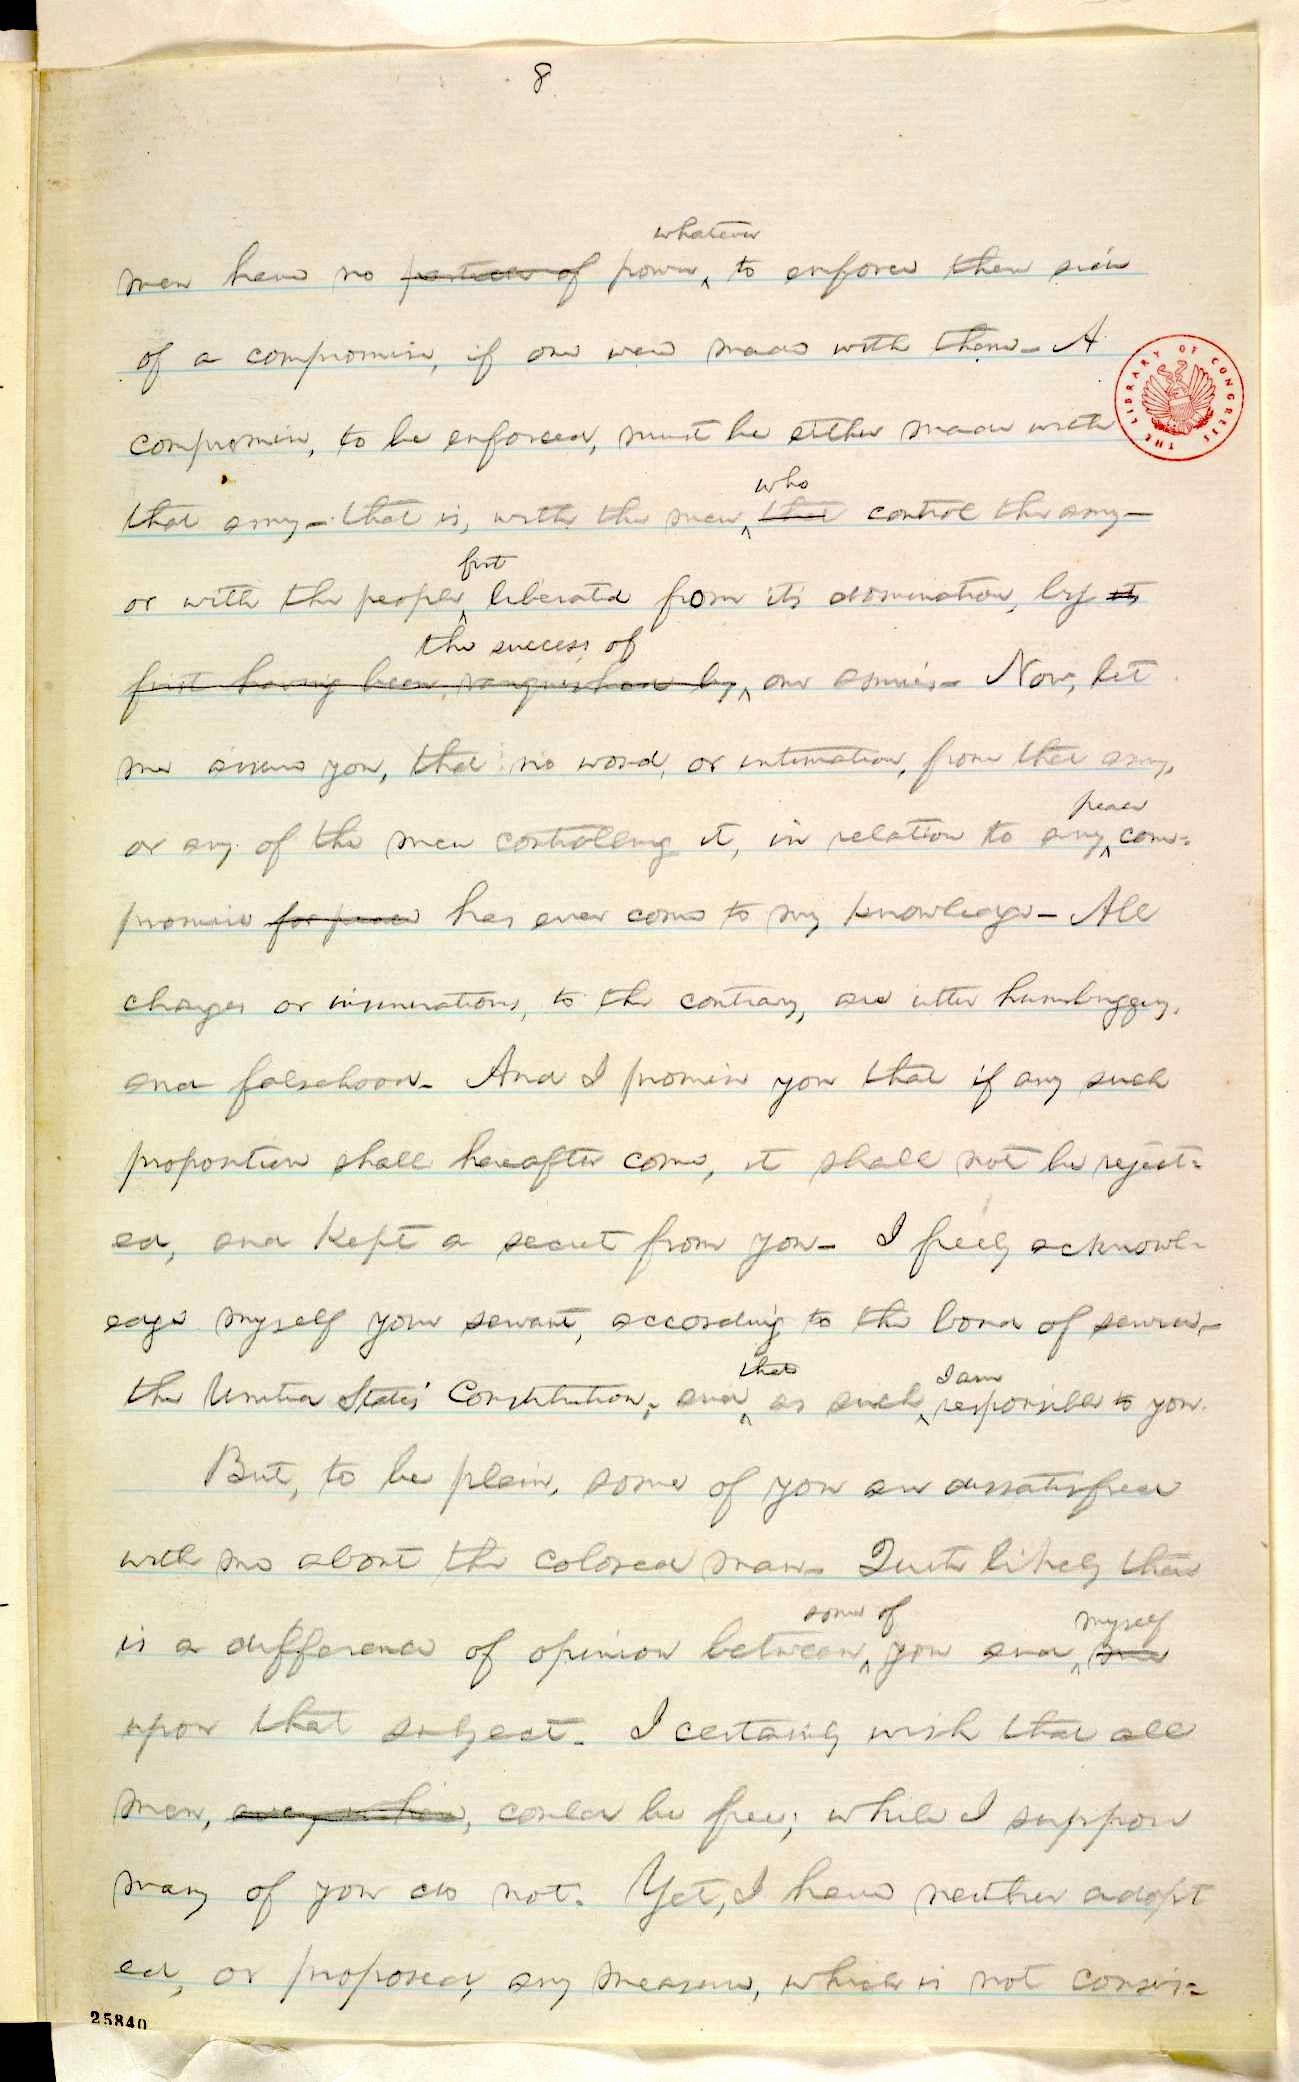 8
whatever
men have no particle of power, to enforce their side
of a compromise, if one were made with them - A
compromise, to be enforced, must be either made with
THE LIBRARY OF CONGRESS
who
that army - that is, with the men that control the army -
first
or with the people, liberated from its domination, by its
the success of
first having been vanquished by our armies - Now, let
me assure you, that no word, or intimation, from that army,
peace
or any of the men controlling it, in relation to any com=
promise for peace has ever come to my knowledge - All
charges or insinuations, to the contrary, are utter humbuggery,
and falsehood - And I promise you that if any such
proposition shall hereafter come, it shall not be reject=
ed, and kept a secret from you - I freely acknowl-
edge myself your servant, according to the bond of service, -
that I am
the United States' Constitution; and as such, responsible to you.
But, to be plain, some of you are dissatisfied
with me about the colored man - Quite likely there
some of myself
is a difference of opinion between you and me
upon that subject - I certainly wish that all
men, everywhere, could be free; while I suppose
many of you do not. Yet, I have neither adopt
ed, or proposed, any measure, which is not consis=
25840